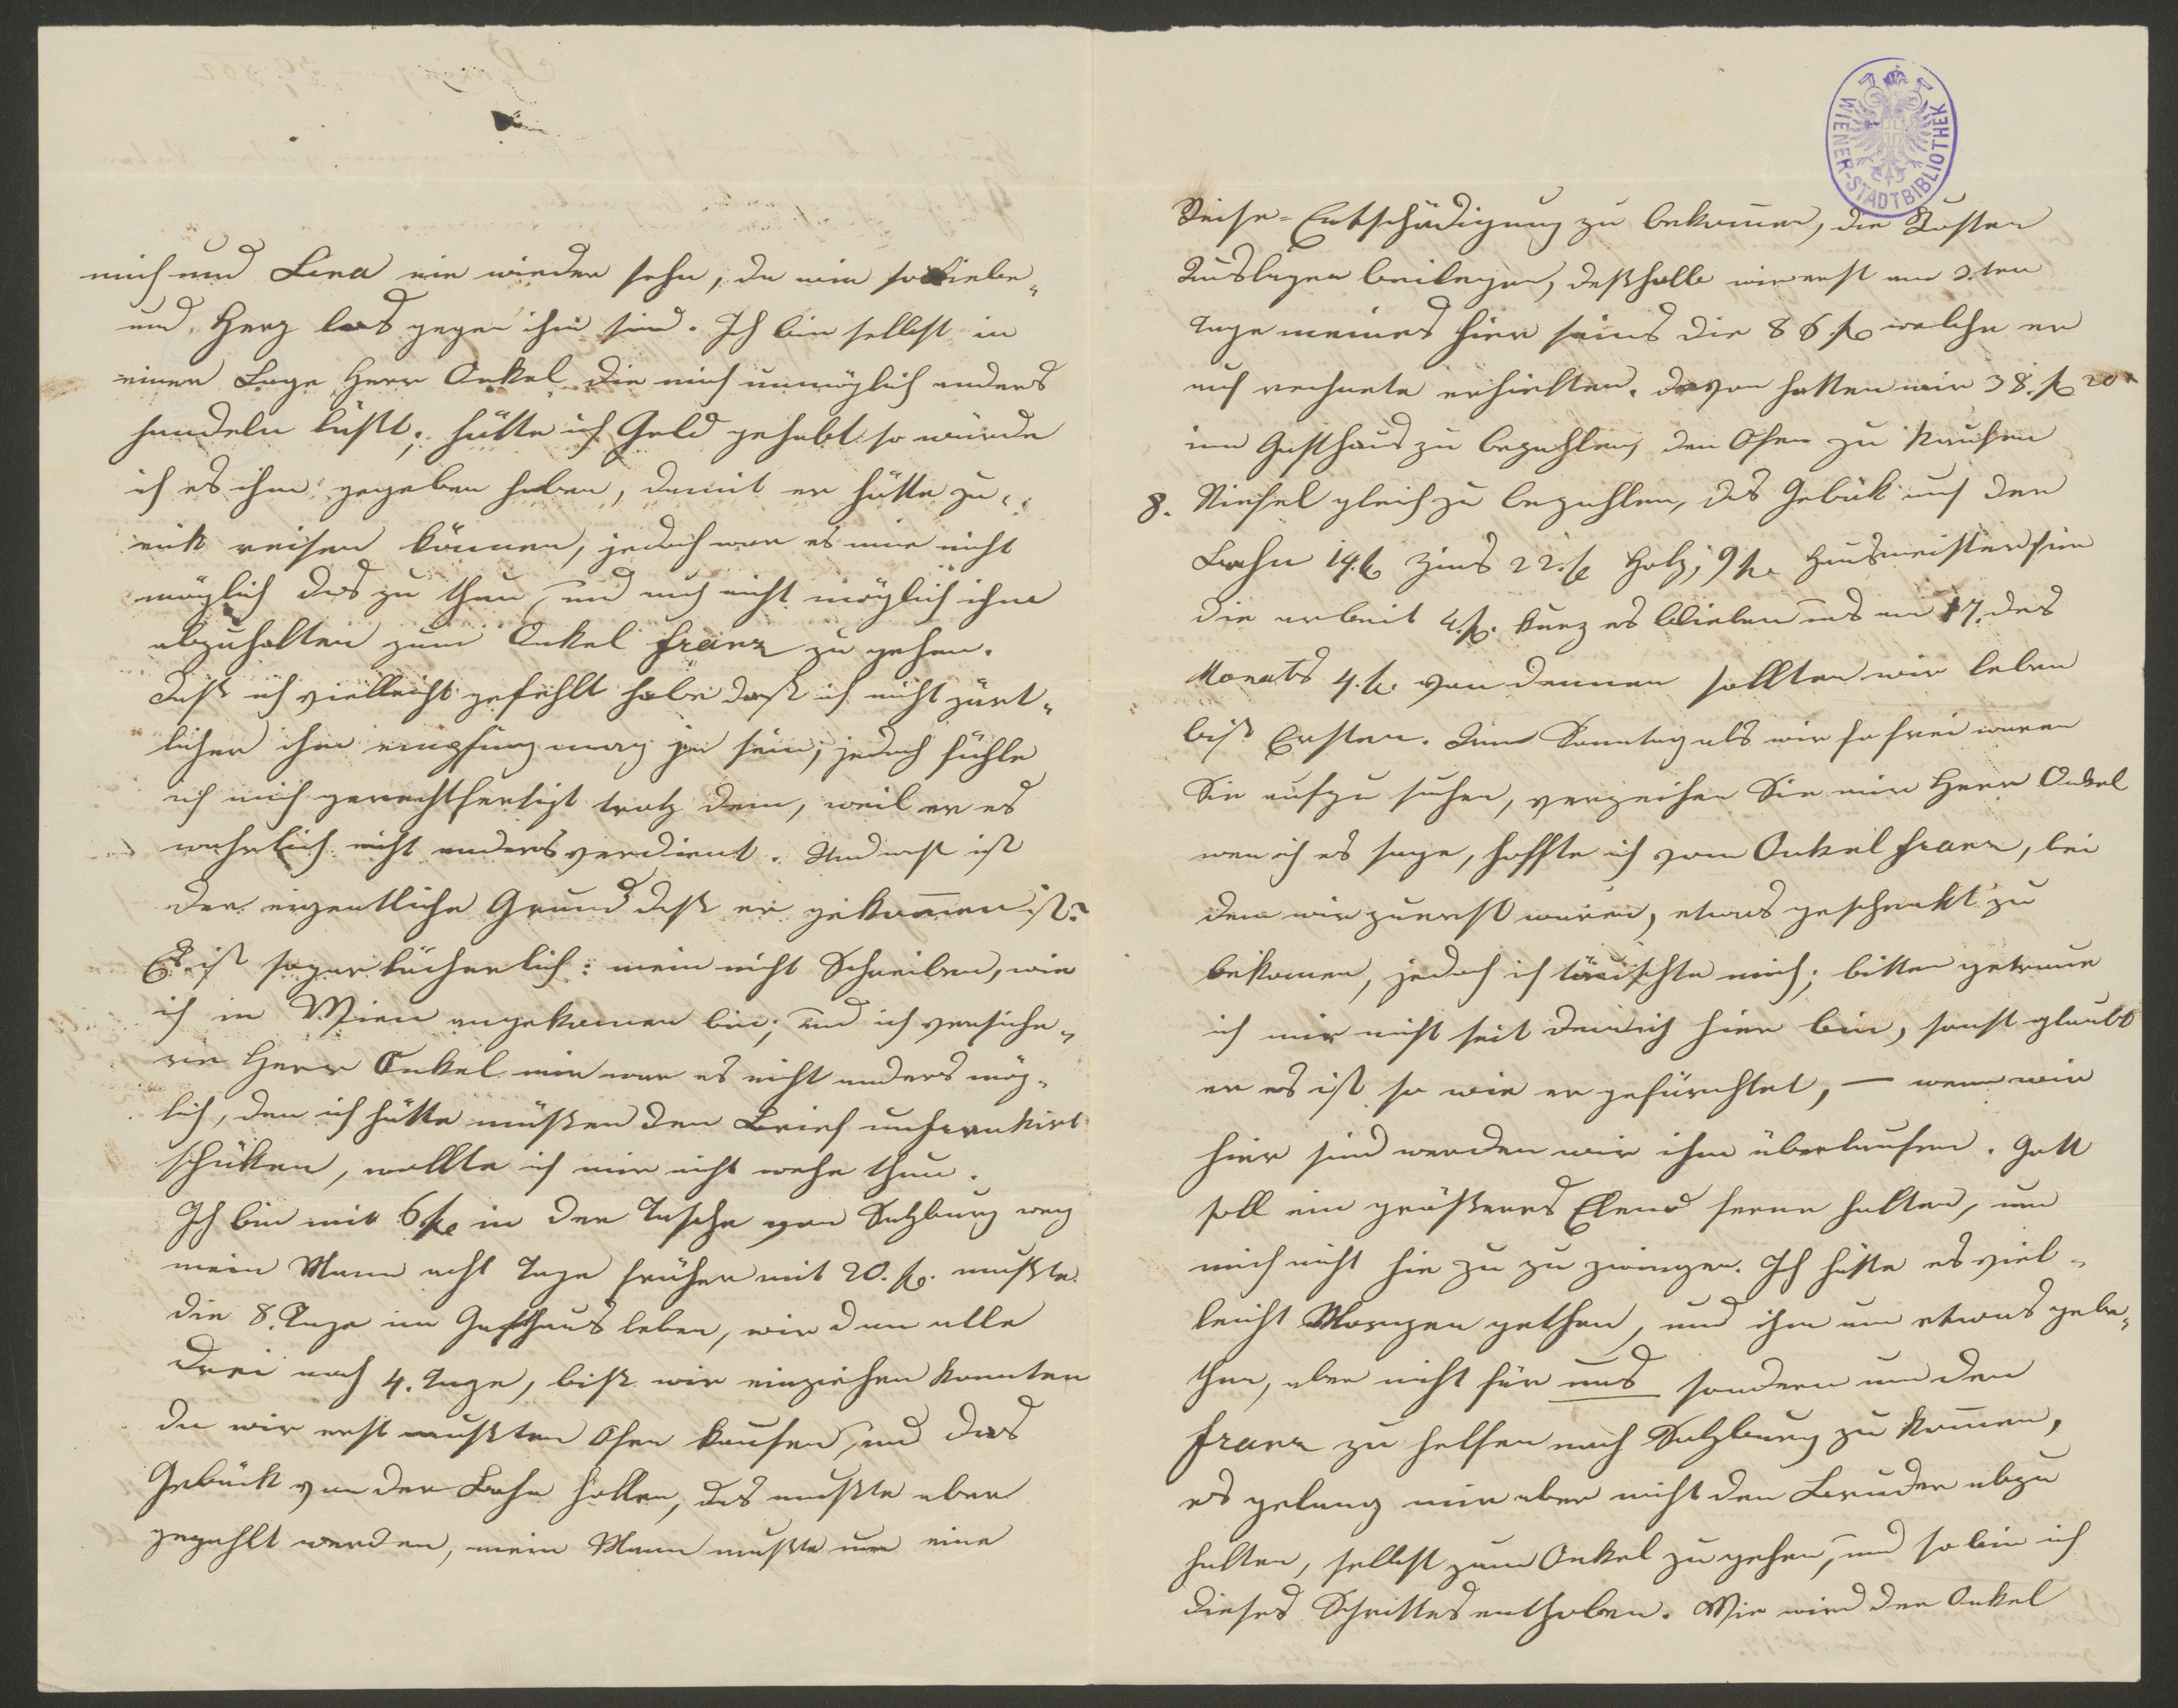 mich und Lina nie wieder sehn, da wir so Liebe-
und Herz los gegen ihm sind. Ich bin selbst in
einer Lage Herr Onkel die mich unmöglich anders
handeln läßt; hätte ich Geld gehabt so würde
ich es ihm gegeben haben, damit er hätte zu-
rük reisen können, jedoch war es mir nicht
möglich das zu thun, und auch nicht möglich ihm
abzuhalten zum Onkel Franz zu gehen.
Daß ich vielleicht gefehlt habe daß ich nicht zärt-
licher ihm empfing mag ja sein, jedoch fühle
ich mich gerechtfertigt trotz dem, weil er es
wahrlich nicht anders verdient. Und was ist
der eigentliche Grund daß er gekom̄en ist?
Es ist sogar lächerlich: mein nicht Schreiben, wie
ich in Wien angekomen bin; und ich versiche-
re Herr Onkel mir war es nicht anders mög-
lich, den ich hätte müßen den Brief unfrankirt
schüken, wollte ich mir nicht wehe thun.
Ich bin mit 6 fl in der Tasche von Salzburg weg
mein Mann acht Tage früher mit 20. fl. mußte
die 8. Tage im Gasthaus leben, wir dan alle
drei noch 4. Tage, biß wir einziehen konnten
da wir erst mußten Ofen kaufen, und das
Gebäck von der Bahn hollen, das mußte aber
gezahlt werden, mein Mann mußte um eine
WIENER-STADTBIBLIOTHEK
Reise-Entschädigung zu bekom̄en, die Kosten
Auslagen beilegen, deßhalb wir erst am 2.ten
Tage meines hier seins die 86 fl welche er
auf rechnete erhielten. Davon hatten wir 38. fl 20
im Gasthaus zu bezahlen, den Ofen zu kaufen
8. Stiefel gleich zu bezahlen, das Gebäk auf der
Bahn 14. fl Zins 22. fl Holz, 9 fl Hausmeister für
die arbeit 4. fl. kurz es blieben uns am 17. des
Monats 4. fl. von dennen sollten wir leben
biß Ersten. Am Sonntag als wir so frei waren
Sie aufzu suchen, verzeihen Sie mir Herr Onkel
wen ich es sage, hoffte ich vom Onkel Franz, bei
dem wir zuerst waren, etwas geschenkt zu
bekomen, jedoch ich täuschte mich; bitten getraue
ich mir nicht seit dem ich hier bin, sonst glaubt
er es ist so wie er gefürchtet, — wenn wir
hier sind werden wir ihm überlaufen. Gott
soll ein größeres Elend ferne halten, um
mich nicht hie zu zu zwingen. Ich hätte es viel-
leicht Morgen gethan, und ihm um etwas gebe-
then, aber nicht für uns sondern um den
Franz zu helfen nach Salzburg zu kom̄en,
es gelang mir aber nicht den Bruder abzu
halten, selbst zum Onkel zu gehen, und so bin ich
dieses Schrittes enthoben. Wie wird der Onkel